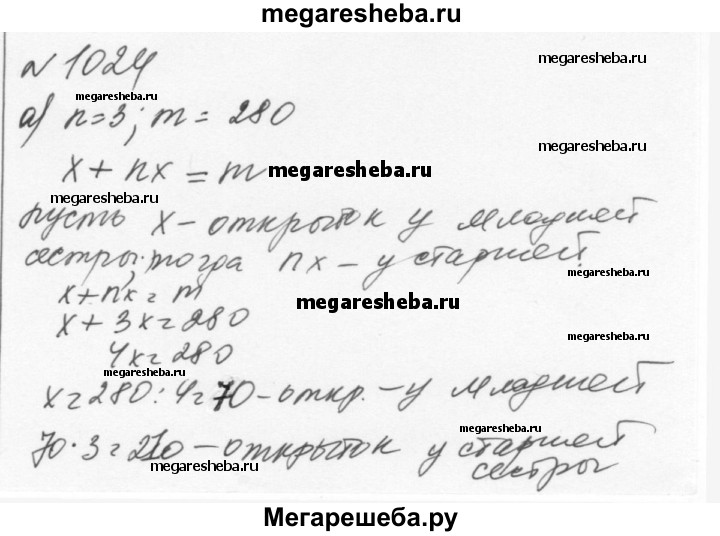 megaresheba.ru
№ 1024
megaresheba.ru
megaresheba.ru
а) n=3; m = 280
megaresheba.ru
x + nx = m
megaresheba.ru
megaresheba.ru
пусть x – открыток у младшей
сестры, тогда nx – у старшей.
megaresheba.ru
x + nx = m
megaresheba.ru
x + 3x = 280
megaresheba.ru
4x = 280
megaresheba.ru
x = 280 : 4 = 70 – откр. – у младшей
megaresheba.ru
70 · 3 = 210 – открыток у старшей
megaresheba.ru
сестры
Мегарешеба.ру